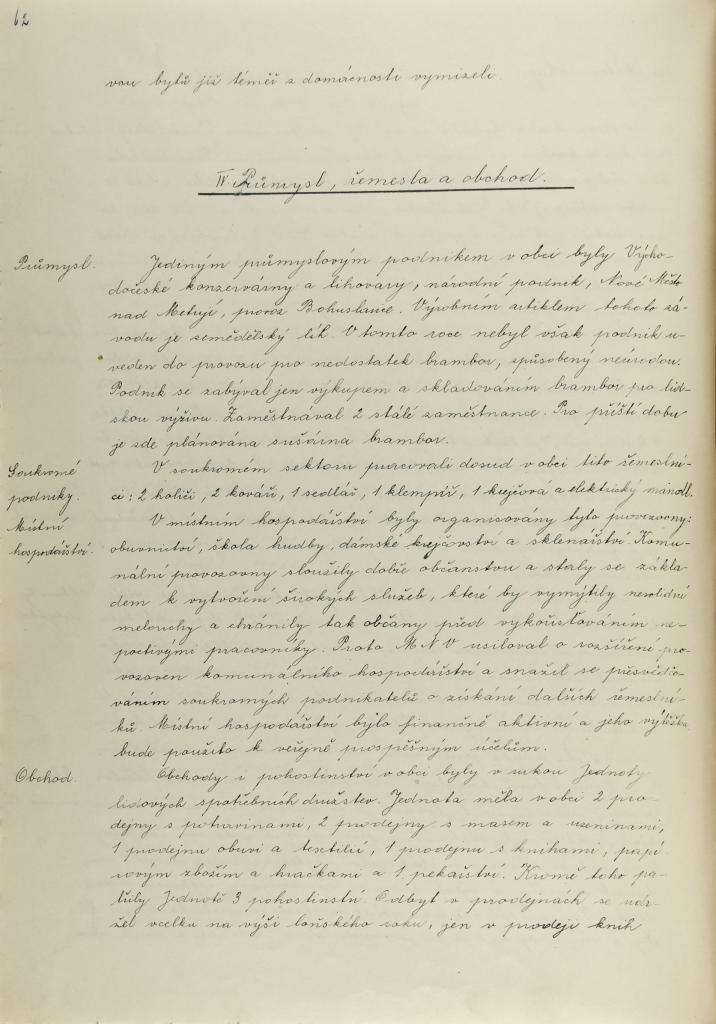 62
vou bytů již téměř z domácnosti vymizeli.
IV. Průmysl, řemesla a obchod.
Průmysl.
Jediným průmyslovým podnikem v obci byly Výcho-
dočeské konzervárny a lihovary, národní podnik, Nové Město
nad Metují, provoz Bohuslavice. Výrobním artiklem tohoto zá-
vodu je zemědělský líh. V tomto roce nebyl však podnik u-
veden do provozu pro nedostatek brambor, způsobený neúrodou.
Podnik se zabýval jen výkupem a skladováním brambor pro lid-
skou výživu. Zaměstnával 2 stálé zaměstnance. Pro příští dobu
je zde plánována sušárna brambor.
Soukromé
podniky.
V soukromém sektoru pracovali dosud v obci tito řemeslní-
ci: 2 holiči, 2 kováři, 1 sedlář, 1 klempíř, 1 krejčová a elektrický mandl.
Místní
hospodářství.
V místním hospodářství byly organisovány tyto provozovny:
obuvnictví, škola hudby, dámské krejčovství a sklenářství. Komu-
nální provozovny sloužily dobře občanstvu a staly se zákla-
dem k vytvoření širokých služeb, které by vymýtily nesolidní
melouchy a chránily tak občany před vykořisťováním ne-
poctivými pracovníky. Proto MNV usiloval o rozšíření pro-
vozoven komunálního hospodářství a snažil se přesvědčo-
váním soukromých podnikatelů o získání dalších řemeslní-
ků. Místní hospodářství bylo finančně aktivní a jeho výtěžku
bude použito k veřejně prospěšným účelům.
Obchod.
Obchody i pohostinství v obci byly v rukou Jednoty
lidových spotřebních družstev. Jednota měla v obci 2 pro-
dejny s potravinami, 2 prodejny s masem a uzeninami,
1 prodejnu obuvi a textilií, 1 prodejnu s knihami, papí-
rovým zbožím a hračkami a 1 pekařství. Kromě toho pa-
třily Jednotě 3 pohostinství. Odbyt v prodejnách se udr-
žel vcelku na výši loňského roku, jen v prodeji knih